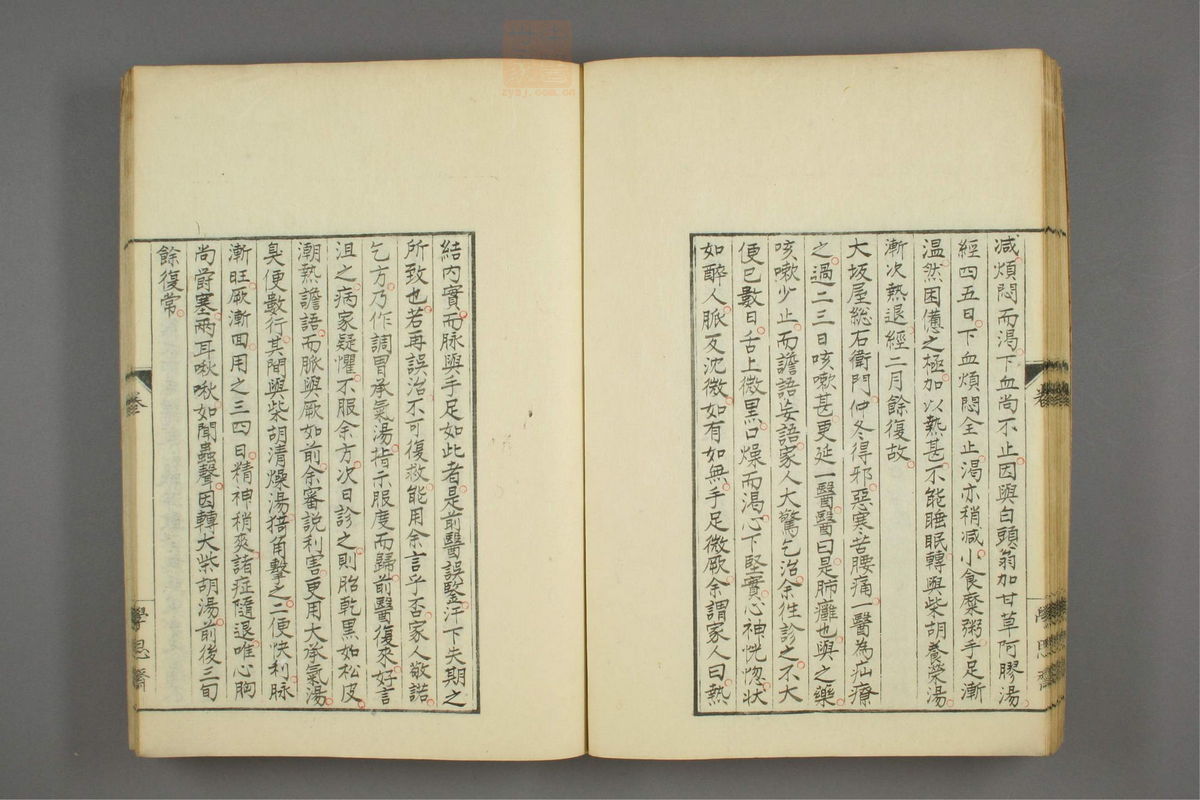 減煩悶而渴下血尚不止因與白頭翁加甘草阿膠湯
經四五日下血煩悶全止渴亦稍減小食糜粥手足漸
溫然困憊之極加以熱甚不能睡眠轉與柴胡養榮湯
漸次熱退經二月餘復故
大坂屋総右衛門仲冬得邪惡寒苦腰痛一醫為疝療
之過二三日咳嗽甚更延一醫醫曰是肺癰也與之藥
咳嗽少止而譫語妄語家人大驚乞治余往診之不大
便已數日舌上微黑口燥而渴心下堅實心神恍惚狀
如醉人脈反沈微如有如無手足微厥余謂家人曰熱
結內實而脉與手足如此者是前醫誤鑒汗下失期之
所致也若再誤治不可復救能用余言乎否家人敬諾
乞方乃作調胃承氣湯指示服度而歸前醫復來好言
沮之病家疑懼不服余方次日診之則胎乾黑如松皮
潮熱譫語而脈與厥如前余審説利害更用大承氣湯
臭便數行其間與柴胡清燥湯掎角擊之二便快利脉
漸旺厥漸回用之三四日精神稍爽諸症隨退唯心胸
尚欝塞兩耳啾啾如聞蟲聲因轉大柴胡湯前後三旬
餘復常
學思齋
zysj.com.cn